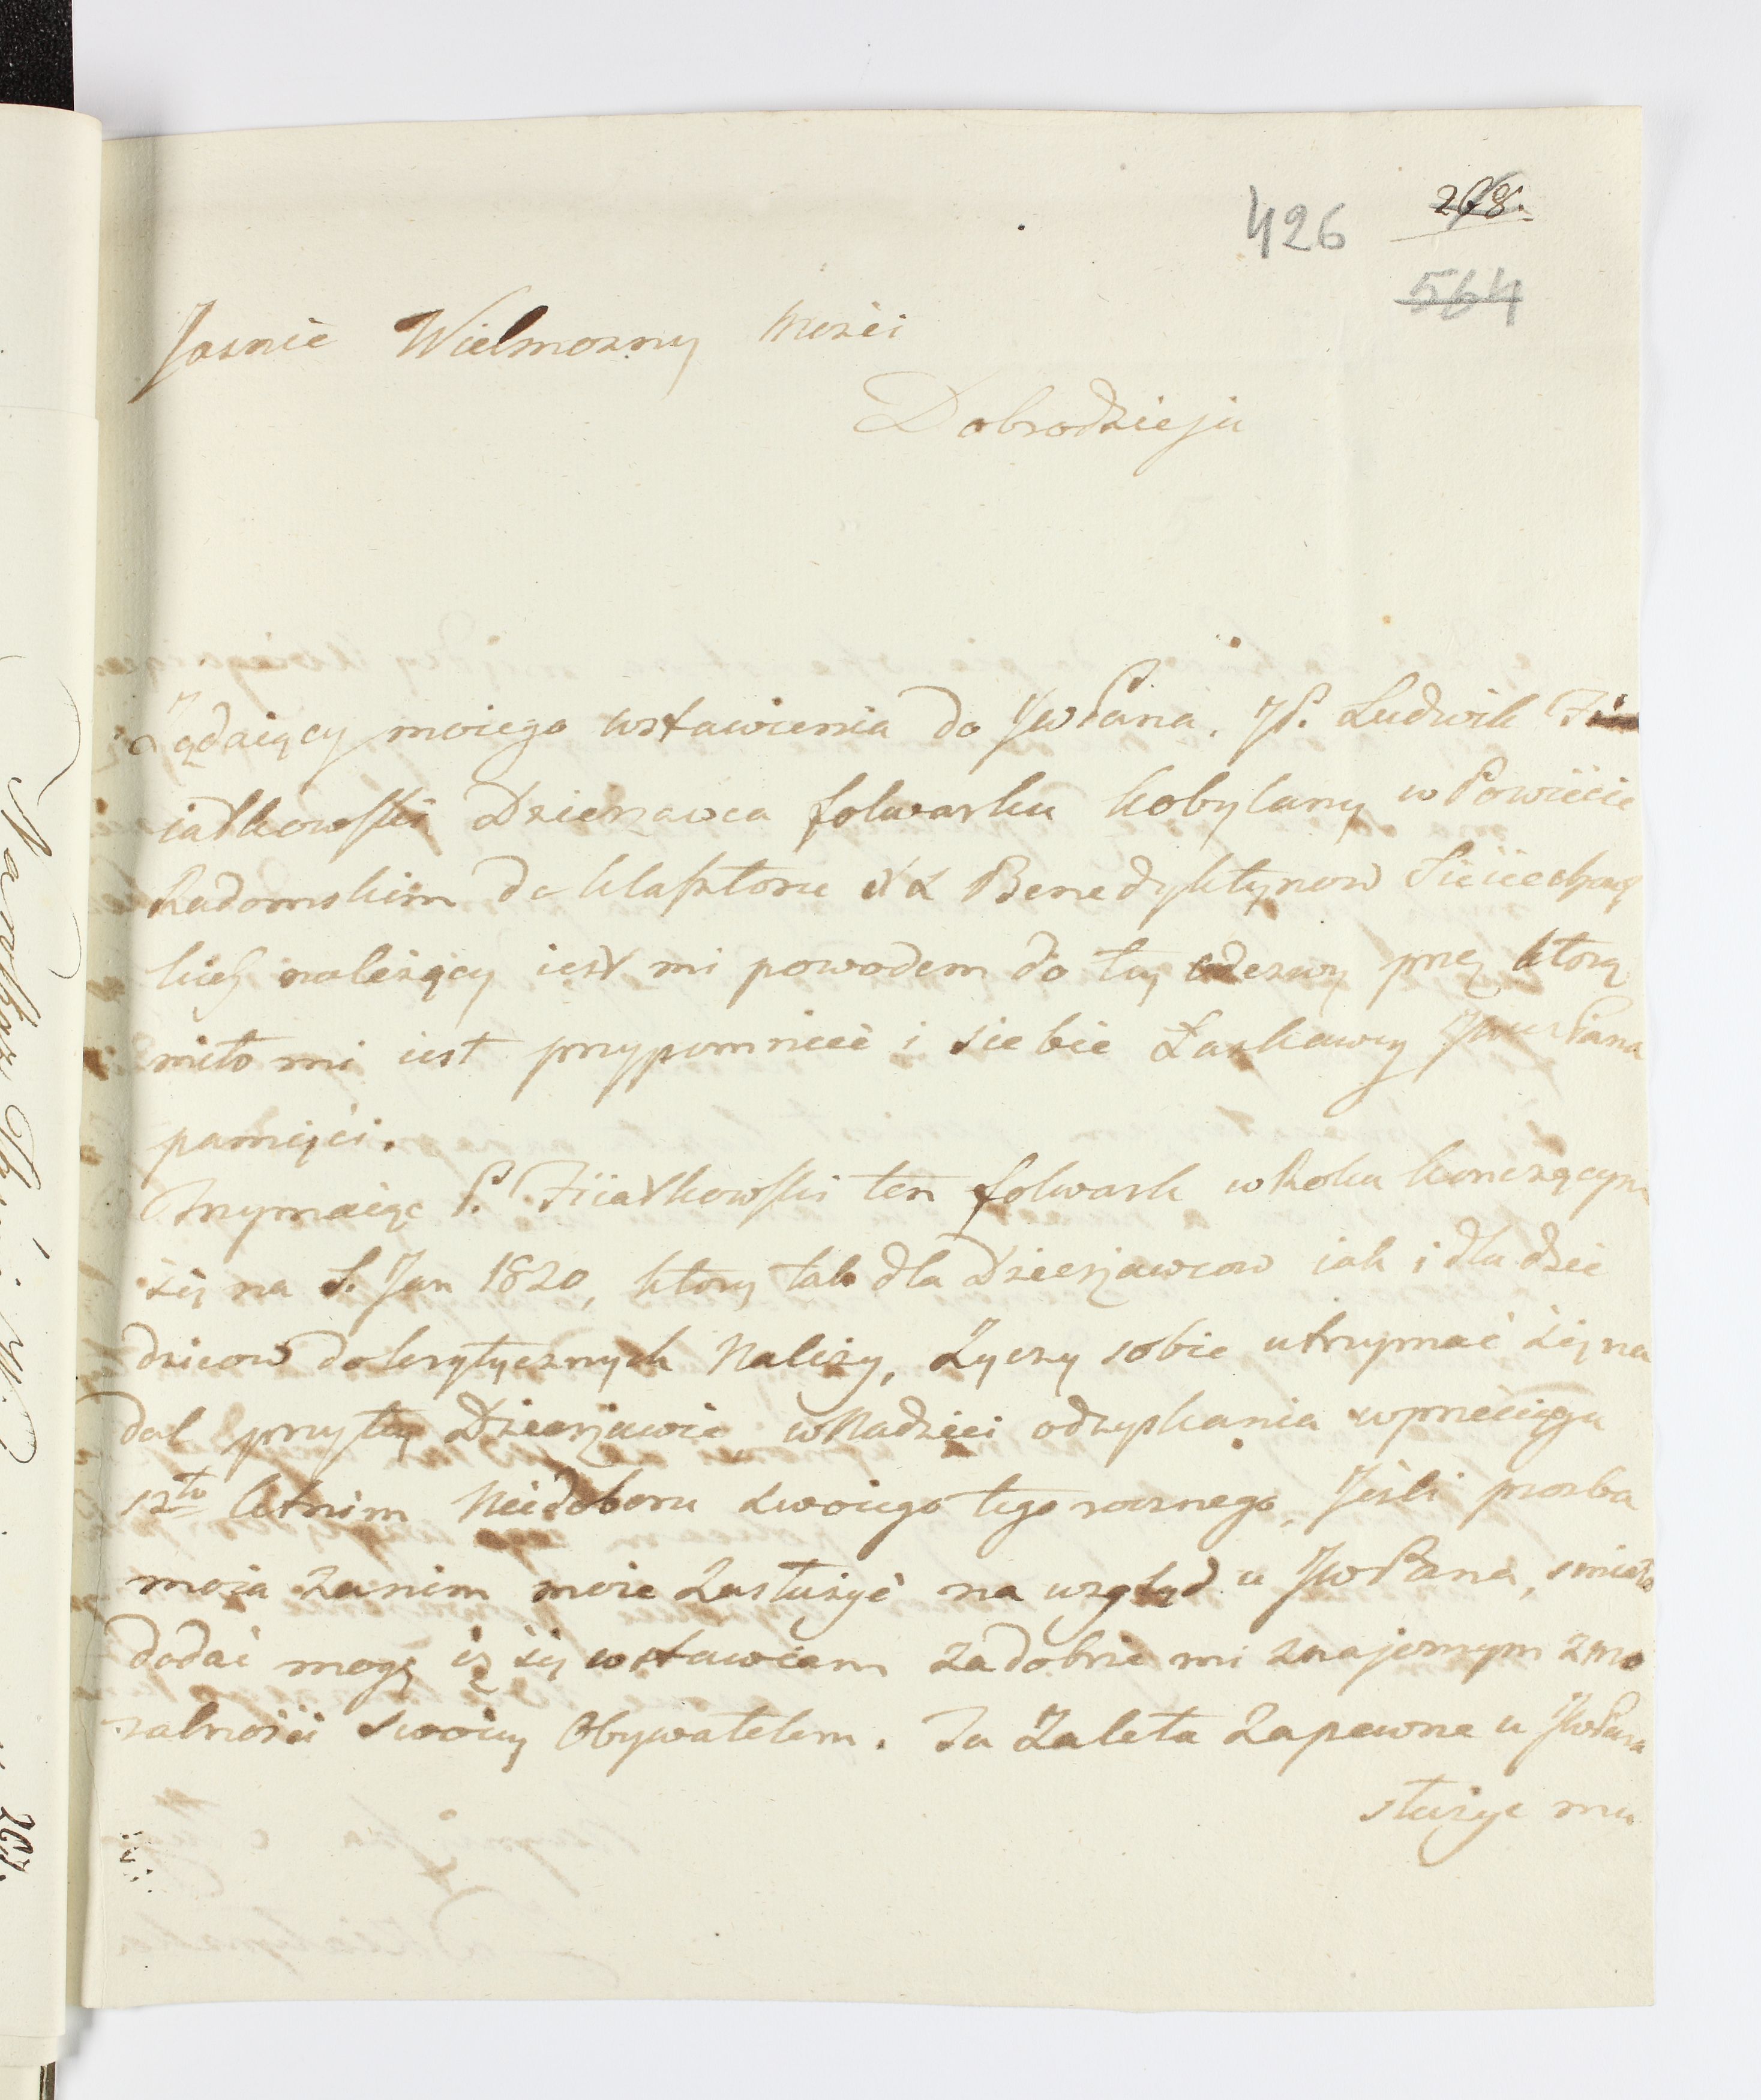 426 268.
564
Jasnie Wielmozny Mości
Dobrodzieju
Żądaiący moiego wstawienia do JWPana, JP. Ludwik
iatkowski Dzierzawca folwarku Kobylany w Powiecie
Radomskim do Klasztoru XX Benedyktynow Sieciechows
kich należący iest mi powodem do tey odezwy przez ktorą
miło mi iest przypomnieć i siebie Łaskawey JWPana
pamięci.
Trzymaiąc P. Fiiatkowski ten folwark w Roku konczącym
się na S. Jan 1820, ktory tak dla Dzierzawcow iak i dla dzie
dzicow do krytycznych Należy, Życzy sobie utrzymać się na
dal przy tey Dzierzawie, w Nadziei odzyskania w przeciągu
letnim Niedoboru swoiego tego rocznego, Jeśli prozba
moia za nim moie zasłużyć na wzgląd u JWPana, smiało
dodać mogę iż się wstawiam za dobrze mi znajomym z mo
ralności swoiey Obywatelem. Ta Zaleta Zapewne u JWPana
służyc mu